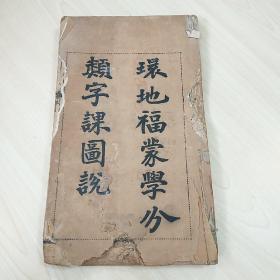 環地福蒙學分
類字課圖說